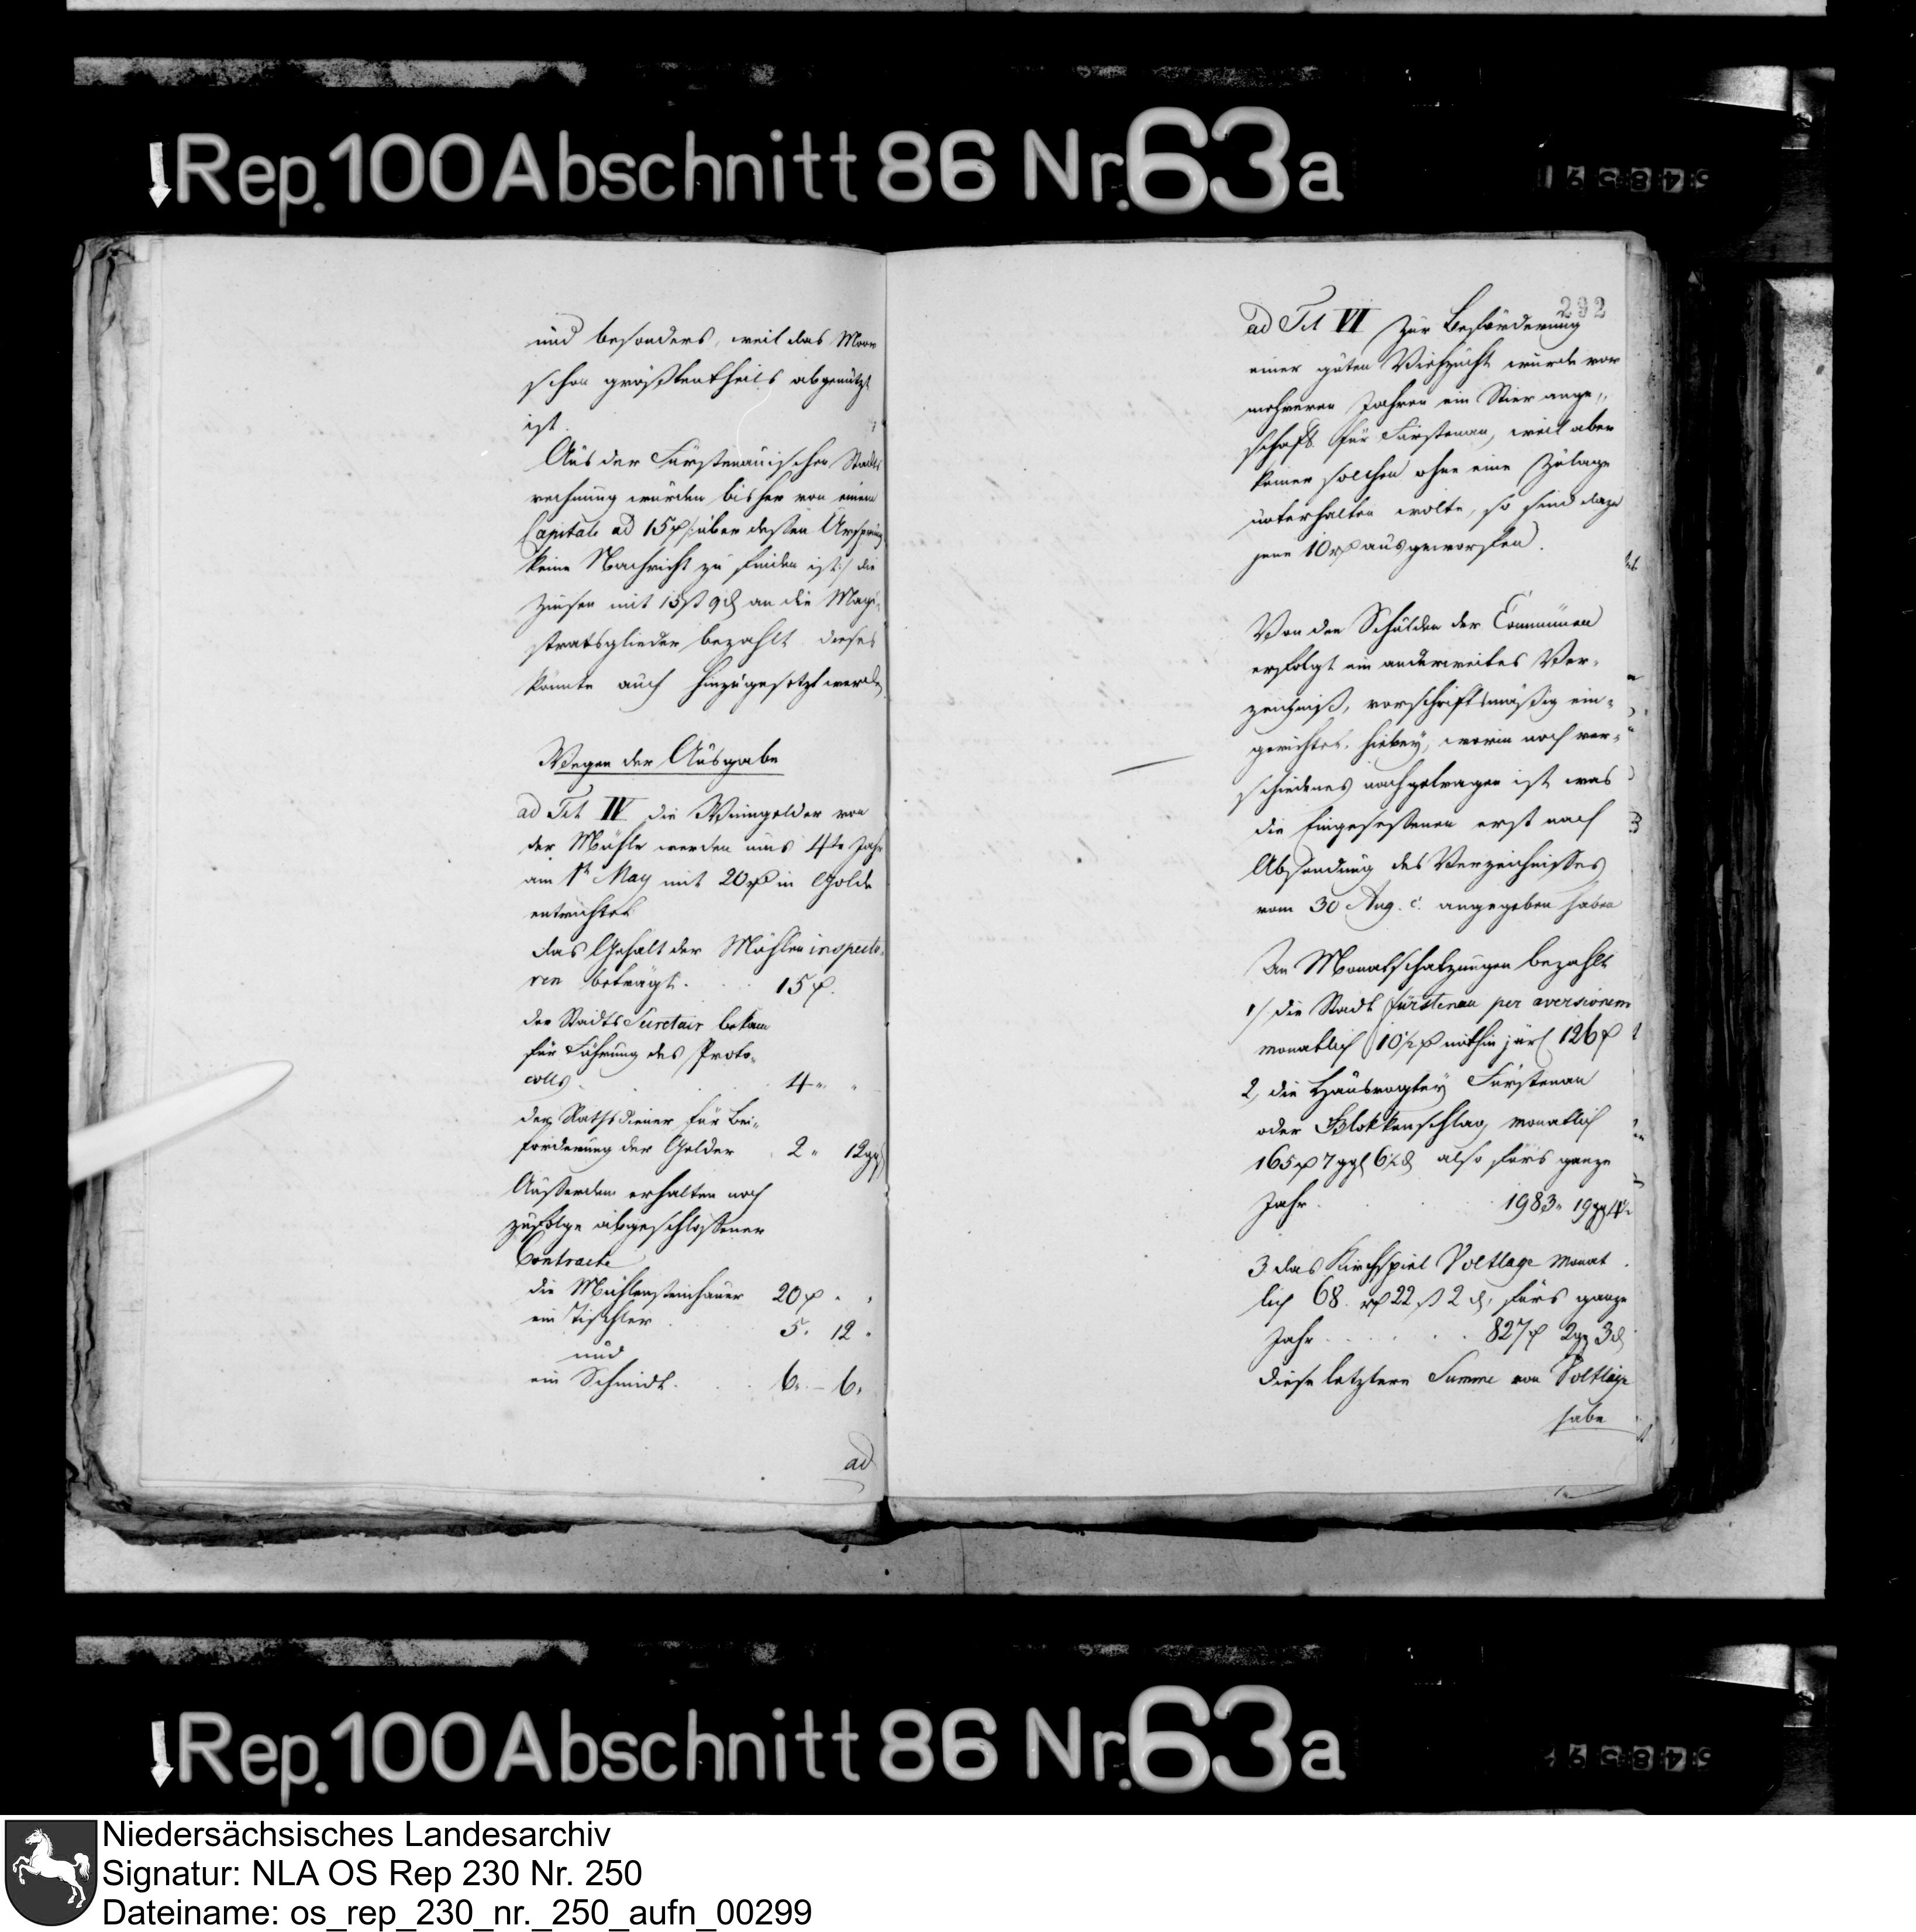 Rep. 100 Abschnitt 86 Nr. 63a
und besonders, weil das Moor
schon größtentheils abgenützt
ist.
Aus der Fürstenauischen Stadts
rechnung wurden bisher von einem
Capitale ad 15 rthlr /: über deßen Ursprung
keine Nachricht zu finden ist :/ die
Zinsen mit 15 ß 9 d an die Magi-
stratsglieder bezahlt dieses
könnte auch hinzugesetzt werden
Wegen der Ausgabe
ad Tit IV die Weingelder von
der Mühle werden ums 4te Jahr
am 1t May mit 20 rthlr in Golde
entrichtet
das Gehalt der Mühleninspecto-
ren beträgt. 15 rthlr.
der Stadts Secretair bekam
für Führung des Proto-
colls 4 " "
der Rathsdiener für Bei-
forderung der Gelder 2 " 12 ggl
Außerdem erhalten noch
zufolge abgeschloßener
Contracte
die Mühlensteinhauer 20 rthlr " "
ein Tischler 5. 12 "
und
ein Schmidt. 6. – 6.
ad
292
ad Tit VI Zur Beförderung
einer guten Viehzucht wurde vor
mehreren Jahren ein Stier ange-
schaft für Fürstenau, weil aber
keiner solchen ohne eine Zulage
unterhalten wolte, so sind dazu
jene 10 rthlr ausgeworfen.
Von den Schulden der Communen
erfolgt ein anderweites Ver-
zeichniß, vorschriftsmäßig ein-
gerichtet, hiebey, worin noch ver-
schiedenes nachgetragen ist was
die Eingeseßenen erst nach
Absendung des Verzeichnisses
vom 30 Aug. c. angegeben haben
An Monatschatzungen bezahlt
1/ die Stadt Fürstenau per aversionem
monatlich 10½ rthlr mithin järl 126 rthlr
2, die Hausvogtey Fürstenau
oder Blokkenschlag monatlich
165 rthlr 7 ggl 6½ d also fürs ganze
Jahr. 1983 " 19 gg
3 das Kirchspiel Voltlage monat
lich 68. rthlr 22 ß 2 d, fürs ganze
Jahr 827 rthlr 2 gg 3 d
diese letztern Summe von Voltlage
habe
Rep. 100 Abschnitt 86 Nr. 63a
Niedersächsisches Landesarchiv
Signatur: NLA OS Rep 230 Nr. 250
Dateiname: os_rep_230_nr._250_aufn_00299